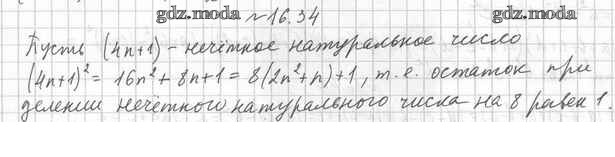 gdz.moda №16.34 gdz.moda
Пусть (4n+1) - нечётное натуральное число
(4n+1)² = 16n² + 8n + 1 = 8(2n² + n) + 1, т.е. остаток при
делении нечётного натурального числа на 8 равен 1.